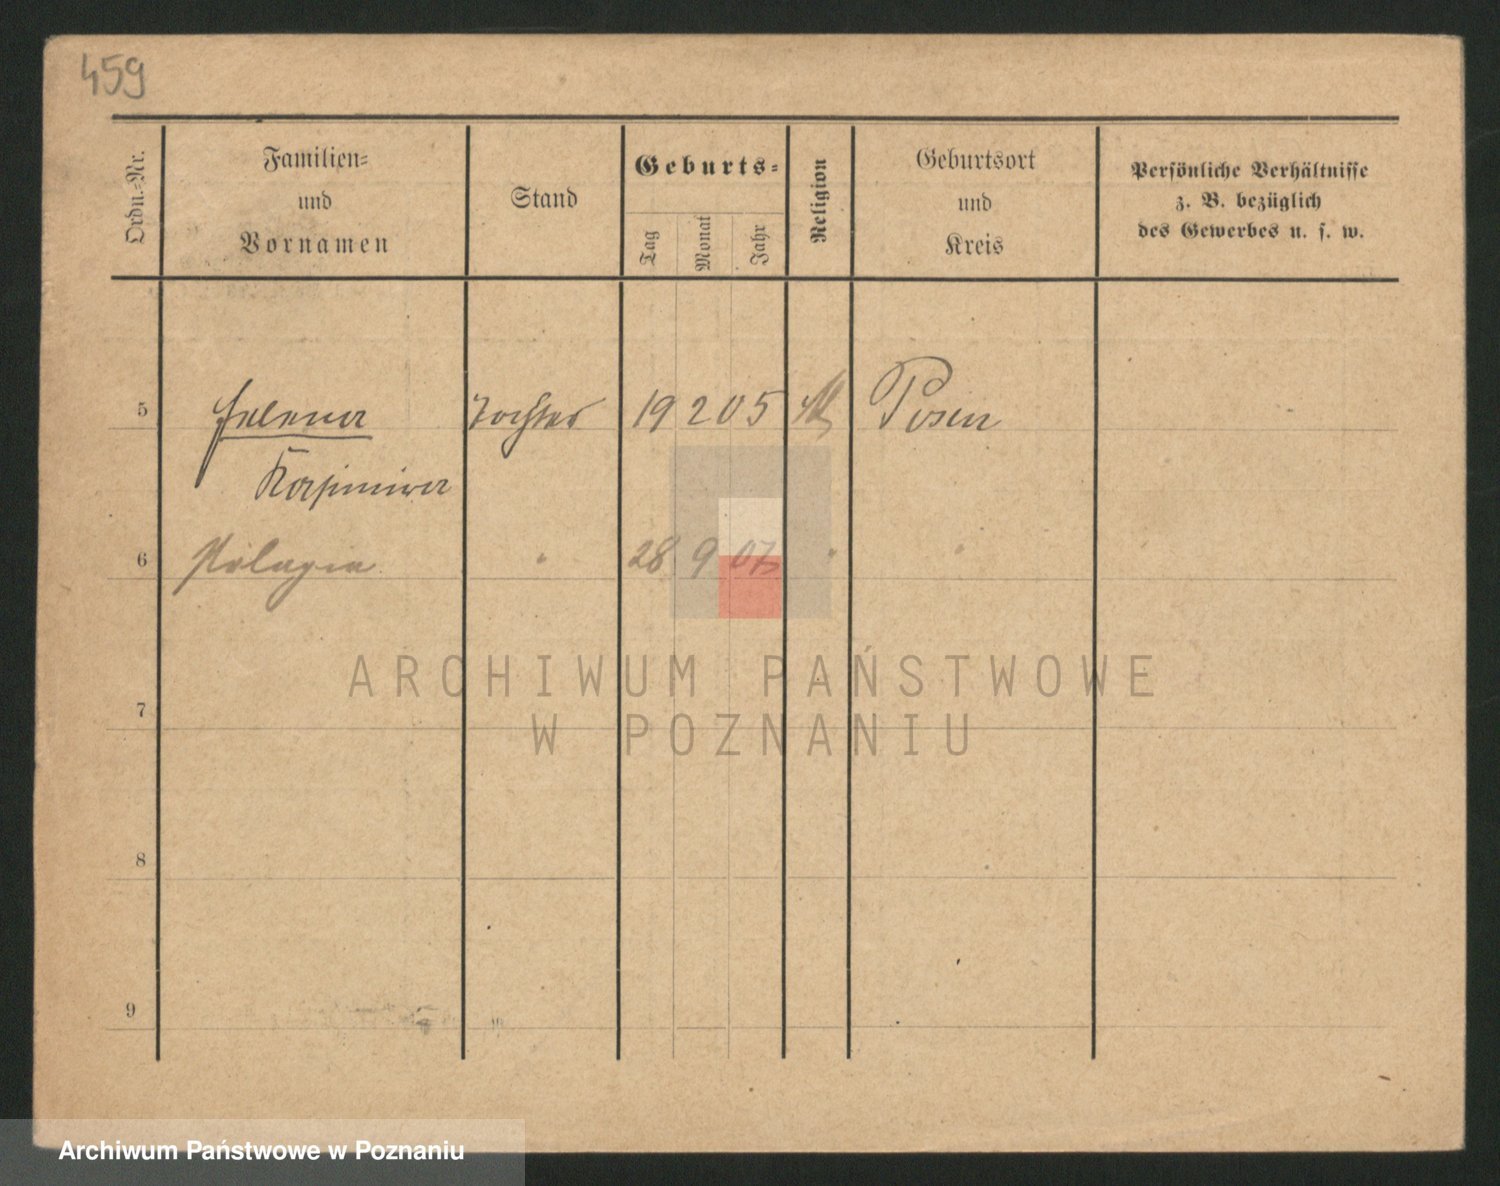 459
Ordn.-Nr.
Familien-
und
Vornamen
Stand
Geburts-
Tag
Monat
Jahr
Religion
Geburtsort
und
Kreis
Persönliche Verhältnisse
z. B. bezüglich
des Gewerbes u. s. w.
5 Helena Tochter 19 2 05 Posen
Kasimira
6 Pelagia " 28 9 07 " "
7
8
9
ARCHIWUM PAŃSTWOWE
W POZNANIU
Archiwum Państwowe w Poznaniu